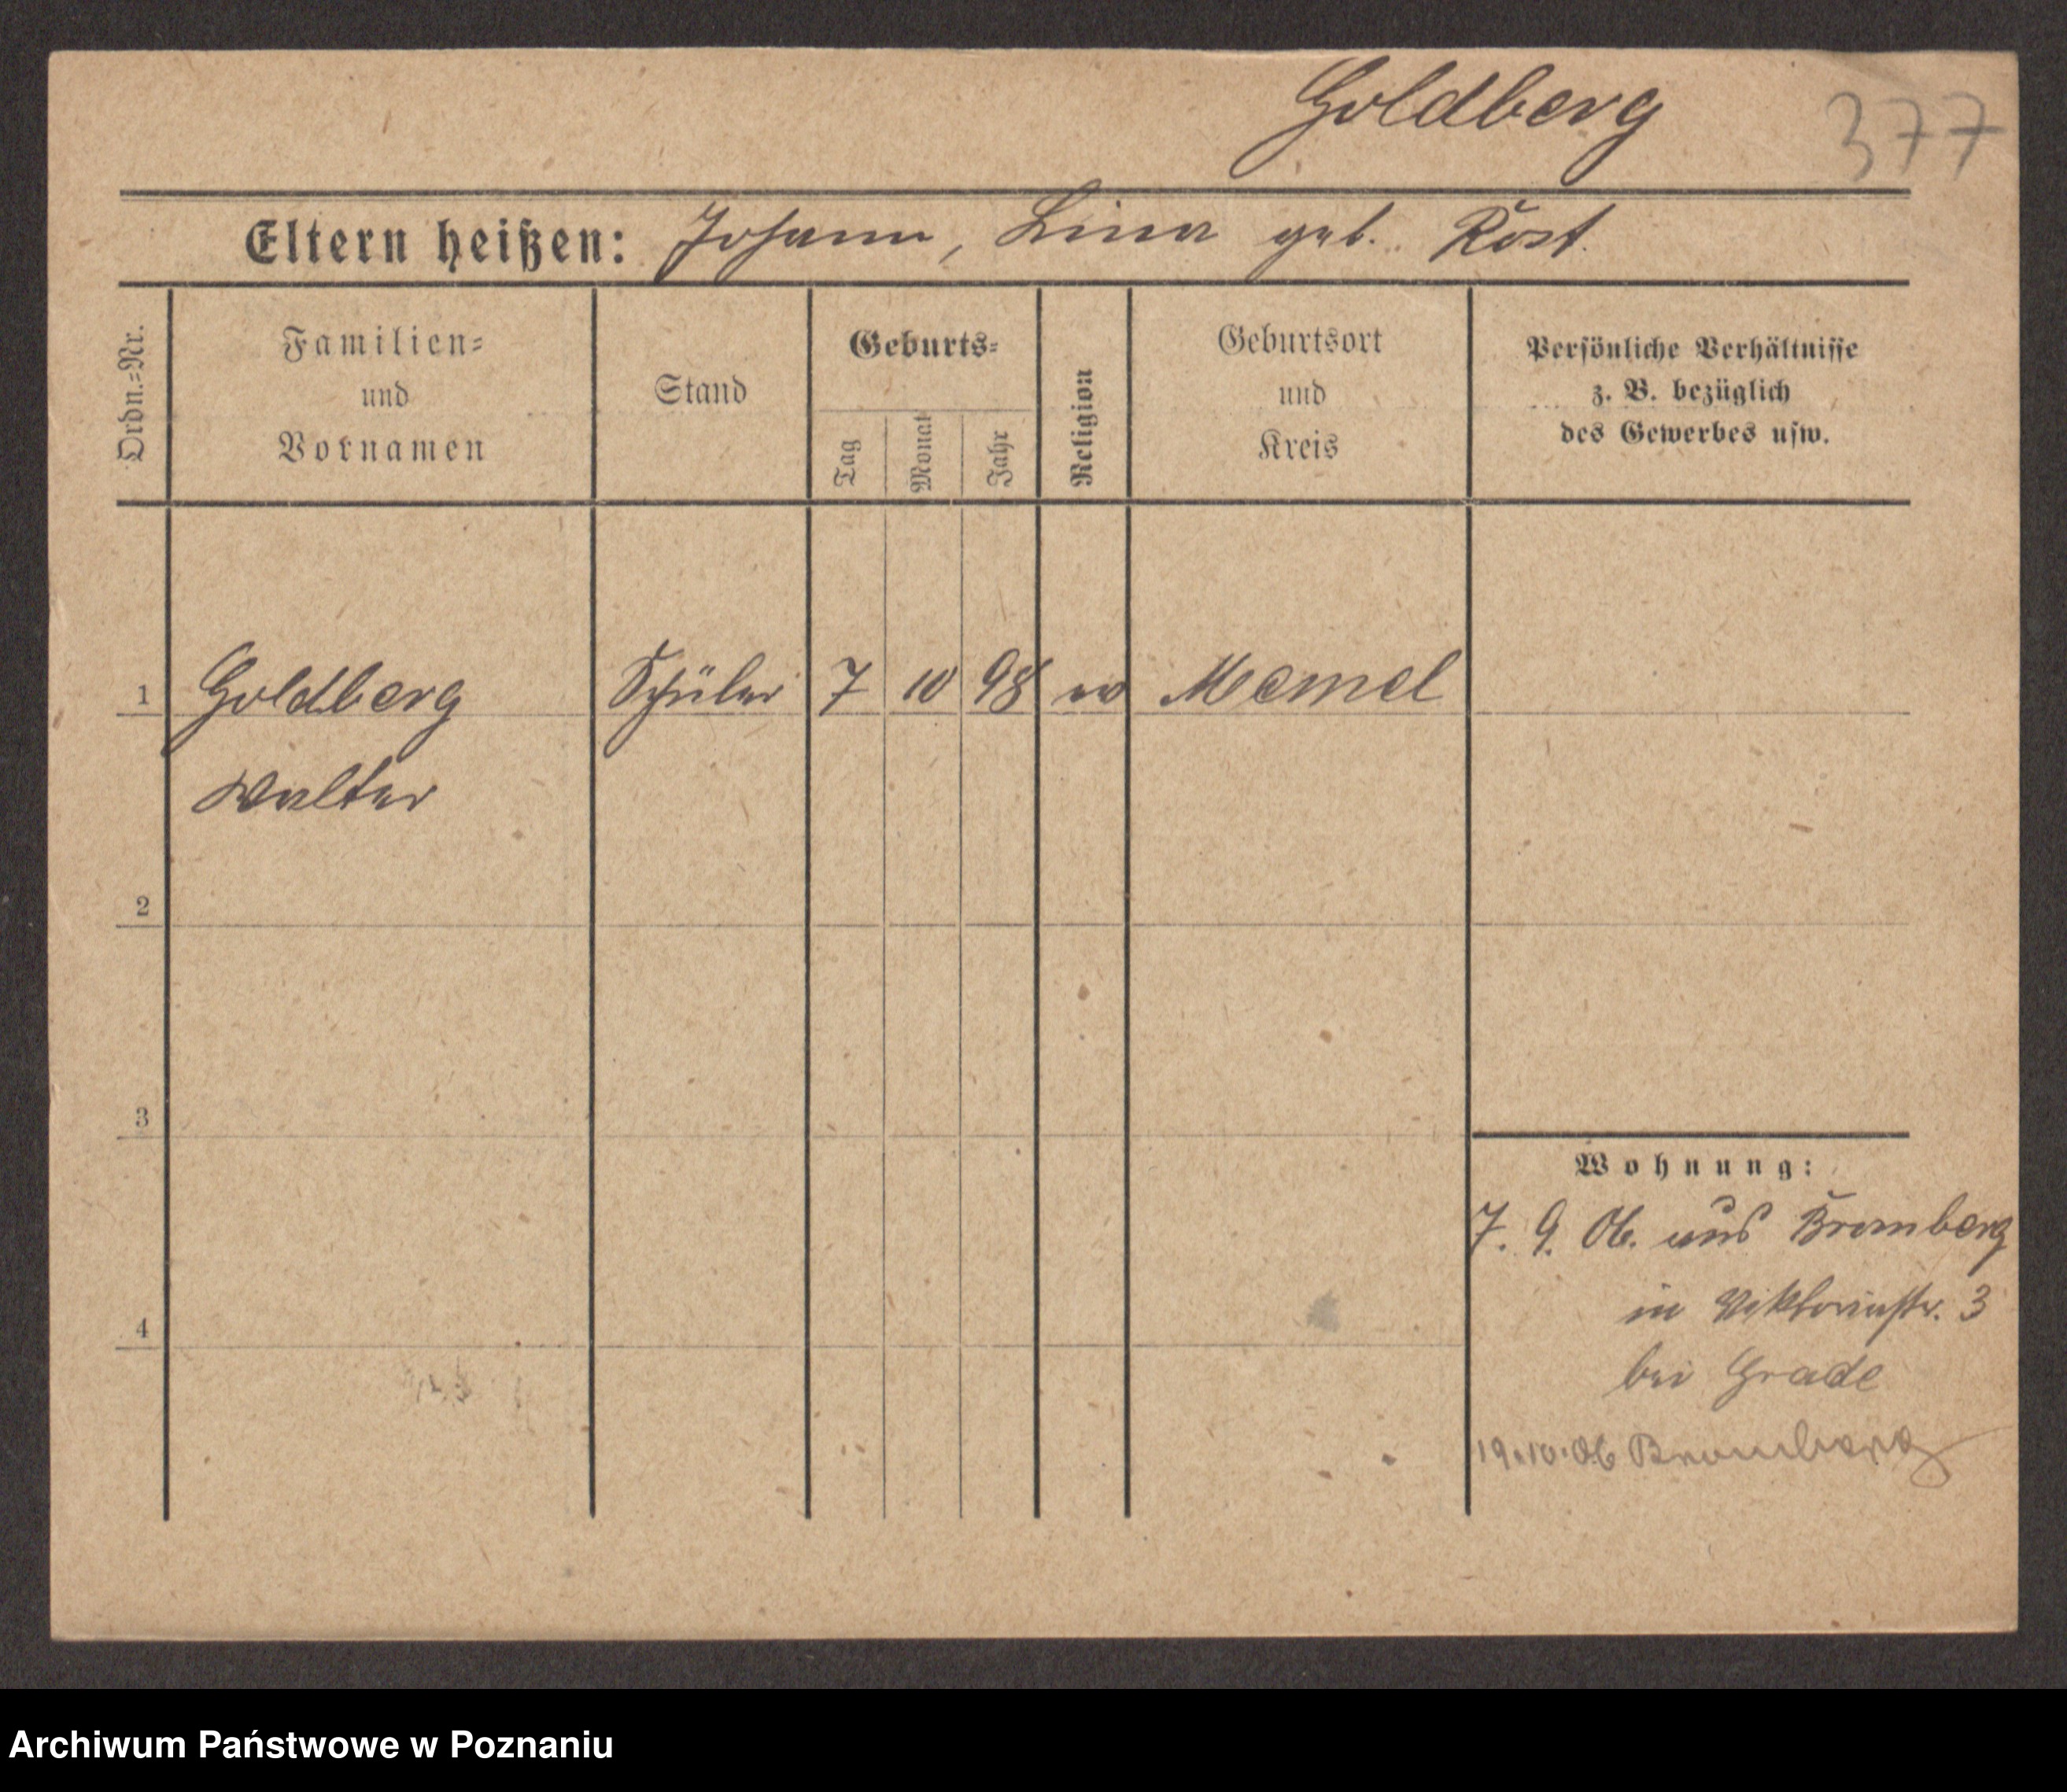 Goldberg
377
Eltern heißen: Johann, Lina geb. Rost.
Ordn.=Nr.
Familien=
und
Vornamen
Stand
Geburts=
Tag
Monat
Jahr
Religion
Geburtsort
und
Kreis
Persönliche Verhältnisse
z. B. bezüglich
des Gewerbes usw.
1 Goldberg Schüler 7 10 98 ev Memel
Walter
2
3
4
Wohnung:
7. 9. 06. aus Bromberg
in Viktoriastr. 3
bei Grade
19.10.06 Bromberg
Archiwum Państwowe w Poznaniu